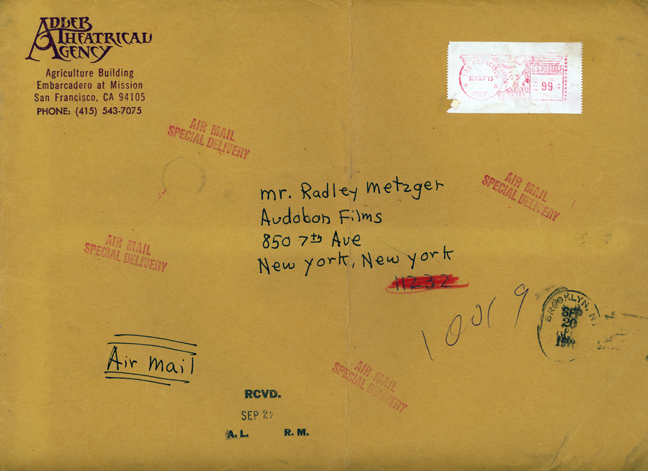 ADLER
THEATRICAL
AGENCY
Agriculture Building
Embarcadero at Mission
San Francisco, CA 94105
PHONE: (415) 543-7075
99
AIR MAIL
SPECIAL DELIVERY
AIR MAIL
SPECIAL DELIVERY
mr. Radley Metzger
Audobon Films
850 7th Ave
New york, New york
11232
AIR MAIL
SPECIAL DELIVERY
10019
BROOKLYN, N.
SEP
20
Air Mail
AIR MAIL
SPECIAL DELIVERY
RCVD.
SEP
A.L. R.M.